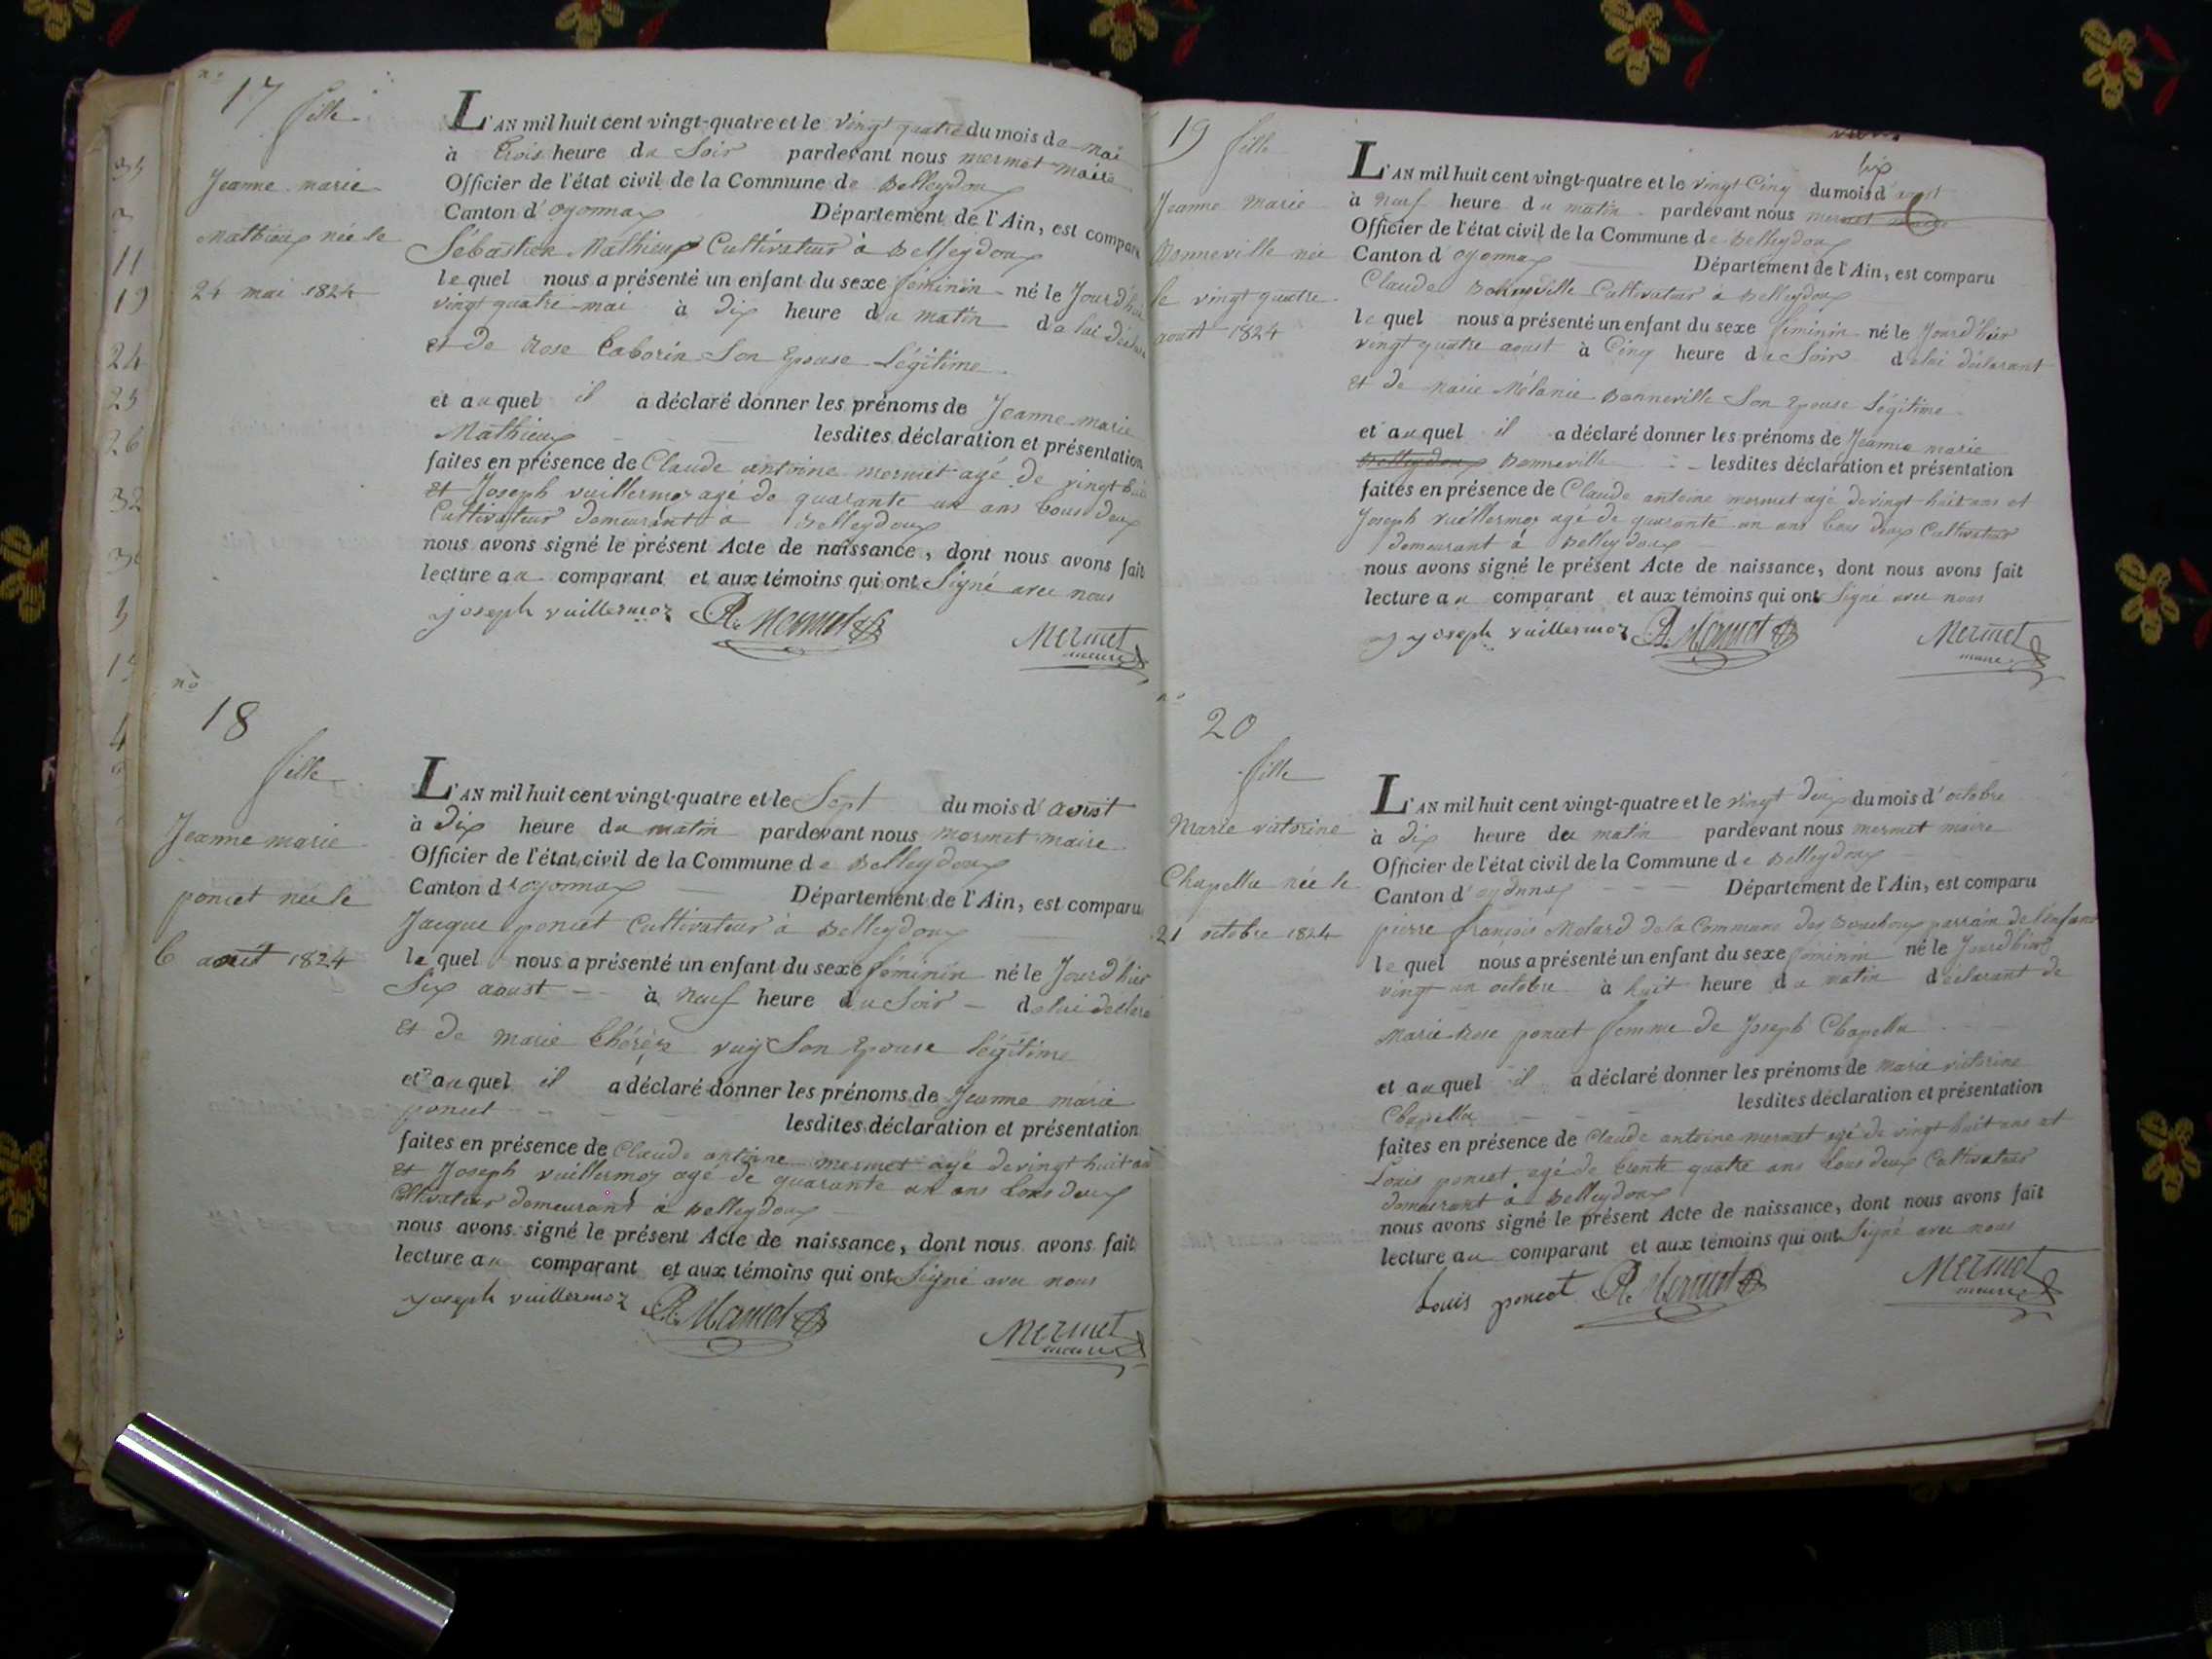 nº
17
fille
Jeanne marie
Mathieux née le
24 mai 1824
L'AN mil huit cent vingt-quatre et le vingt quatre du mois de mai
à trois heure du Soir pardevant nous mermet maire
Officier de l'état civil de la Commune de Belleydoux
Canton d'oyonnax Département de l'Ain, est comparu
Sébastien Mathieux Cultivateur à Belleydoux
lequel nous a présenté un enfant du sexe féminin né le Jourd'hui
vingt quatre mai à dix heure du matin de lui déclarant
et de Rose Son Epouse Légitime
et auquel il a déclaré donner les prénoms de Jeanne marie
Mathieux lesdites déclaration et présentation
faites en présence de Claude antoine mermet agé de vingt huit
et Joseph vuillermoz agé de quarante un ans tous deux
Cultivateur demeurant à Belleydoux
nous avons signé le présent Acte de naissance, dont nous avons fait
lecture au comparant et aux témoins qui ont Signé avec nous
joseph vuillermoz Mermet Mermet
maire
nº
18
fille
Jeanne marie
poncet née le
6 août 1824
L'AN mil huit cent vingt-quatre et le Sept du mois d'aoust
à dix heure du matin pardevant nous mermet maire
Officier de l'état civil de la Commune de Belleydoux
Canton d'oyonnax Département de l'Ain, est comparu
Jacque poncet Cultivateur à Belleydoux
lequel nous a présenté un enfant du sexe féminin né le Jourd'hier
Six aoust à neuf heure du Soir de lui déclaré
et de marie thérèse vuy Son Epouse légitime
et auquel il a déclaré donner les prénoms de Jeanne marie
poncet lesdites déclaration et présentation
faites en présence de Claude antoine mermet agé de vingt huit an
et Joseph vuillermoz agé de quarante un ans tous deux
Cultivateur demeurant à Belleydoux
nous avons signé le présent Acte de naissance, dont nous avons fait
lecture au comparant et aux témoins qui ont Signé avec nous
joseph vuillermoz Mermet Mermet
maire
19 fille
Jeanne Marie
Bonneville née
le vingt quatre
aoust 1824
L'AN mil huit cent vingt-quatre et le vingt Cinq du mois d'aoust
à neuf heure du matin pardevant nous mermet maire
Officier de l'état civil de la Commune de Belleydoux
Canton d'oyonnax Département de l'Ain, est comparu
Claude Bonneville Cultivateur à Belleydoux
lequel nous a présenté un enfant du sexe féminin né le Jourd'hier
vingt quatre aoust à Cinq heure du Soir de lui déclarant
et de Marie Mélanie Bonneville Son Epouse Légitime
et auquel il a déclaré donner les prénoms de Jeanne marie
Belleydoux Bonneville lesdites déclaration et présentation
faites en présence de Claude antoine mermet agé de vingt huit ans et
Joseph vuillermoz agé de quarante un ans tous deux Cultivateur
demeurant à Belleydoux
nous avons signé le présent Acte de naissance, dont nous avons fait
lecture au comparant et aux témoins qui ont Signé avec nous
joseph vuillermoz Mermet Mermet
maire
nº
20
fille
Marie victorine
Chapellu née le
21 octobre 1824
L'AN mil huit cent vingt-quatre et le vingt deux du mois d'octobre
à dix heure du matin pardevant nous mermet maire
Officier de l'état civil de la Commune de Belleydoux
Canton d'oyonnax Département de l'Ain, est comparu
pierre françois Molard de la Commune des Bouchoux parrain de l'enfant
lequel nous a présenté un enfant du sexe féminin né le Jourd'hier
vingt un octobre à huit heure du matin déclarant de
Marie Rose poncet femme de Joseph Chapellu
et auquel il a déclaré donner les prénoms de marie victorine
Chapellu lesdites déclaration et présentation
faites en présence de Claude antoine mermet agé de vingt huit ans et
Louis poncet agé de trente quatre ans tous deux Cultivateur
demeurant à Belleydoux
nous avons signé le présent Acte de naissance, dont nous avons fait
lecture au comparant et aux témoins qui ont Signé avec nous
Louis poncet Mermet Mermet
maire